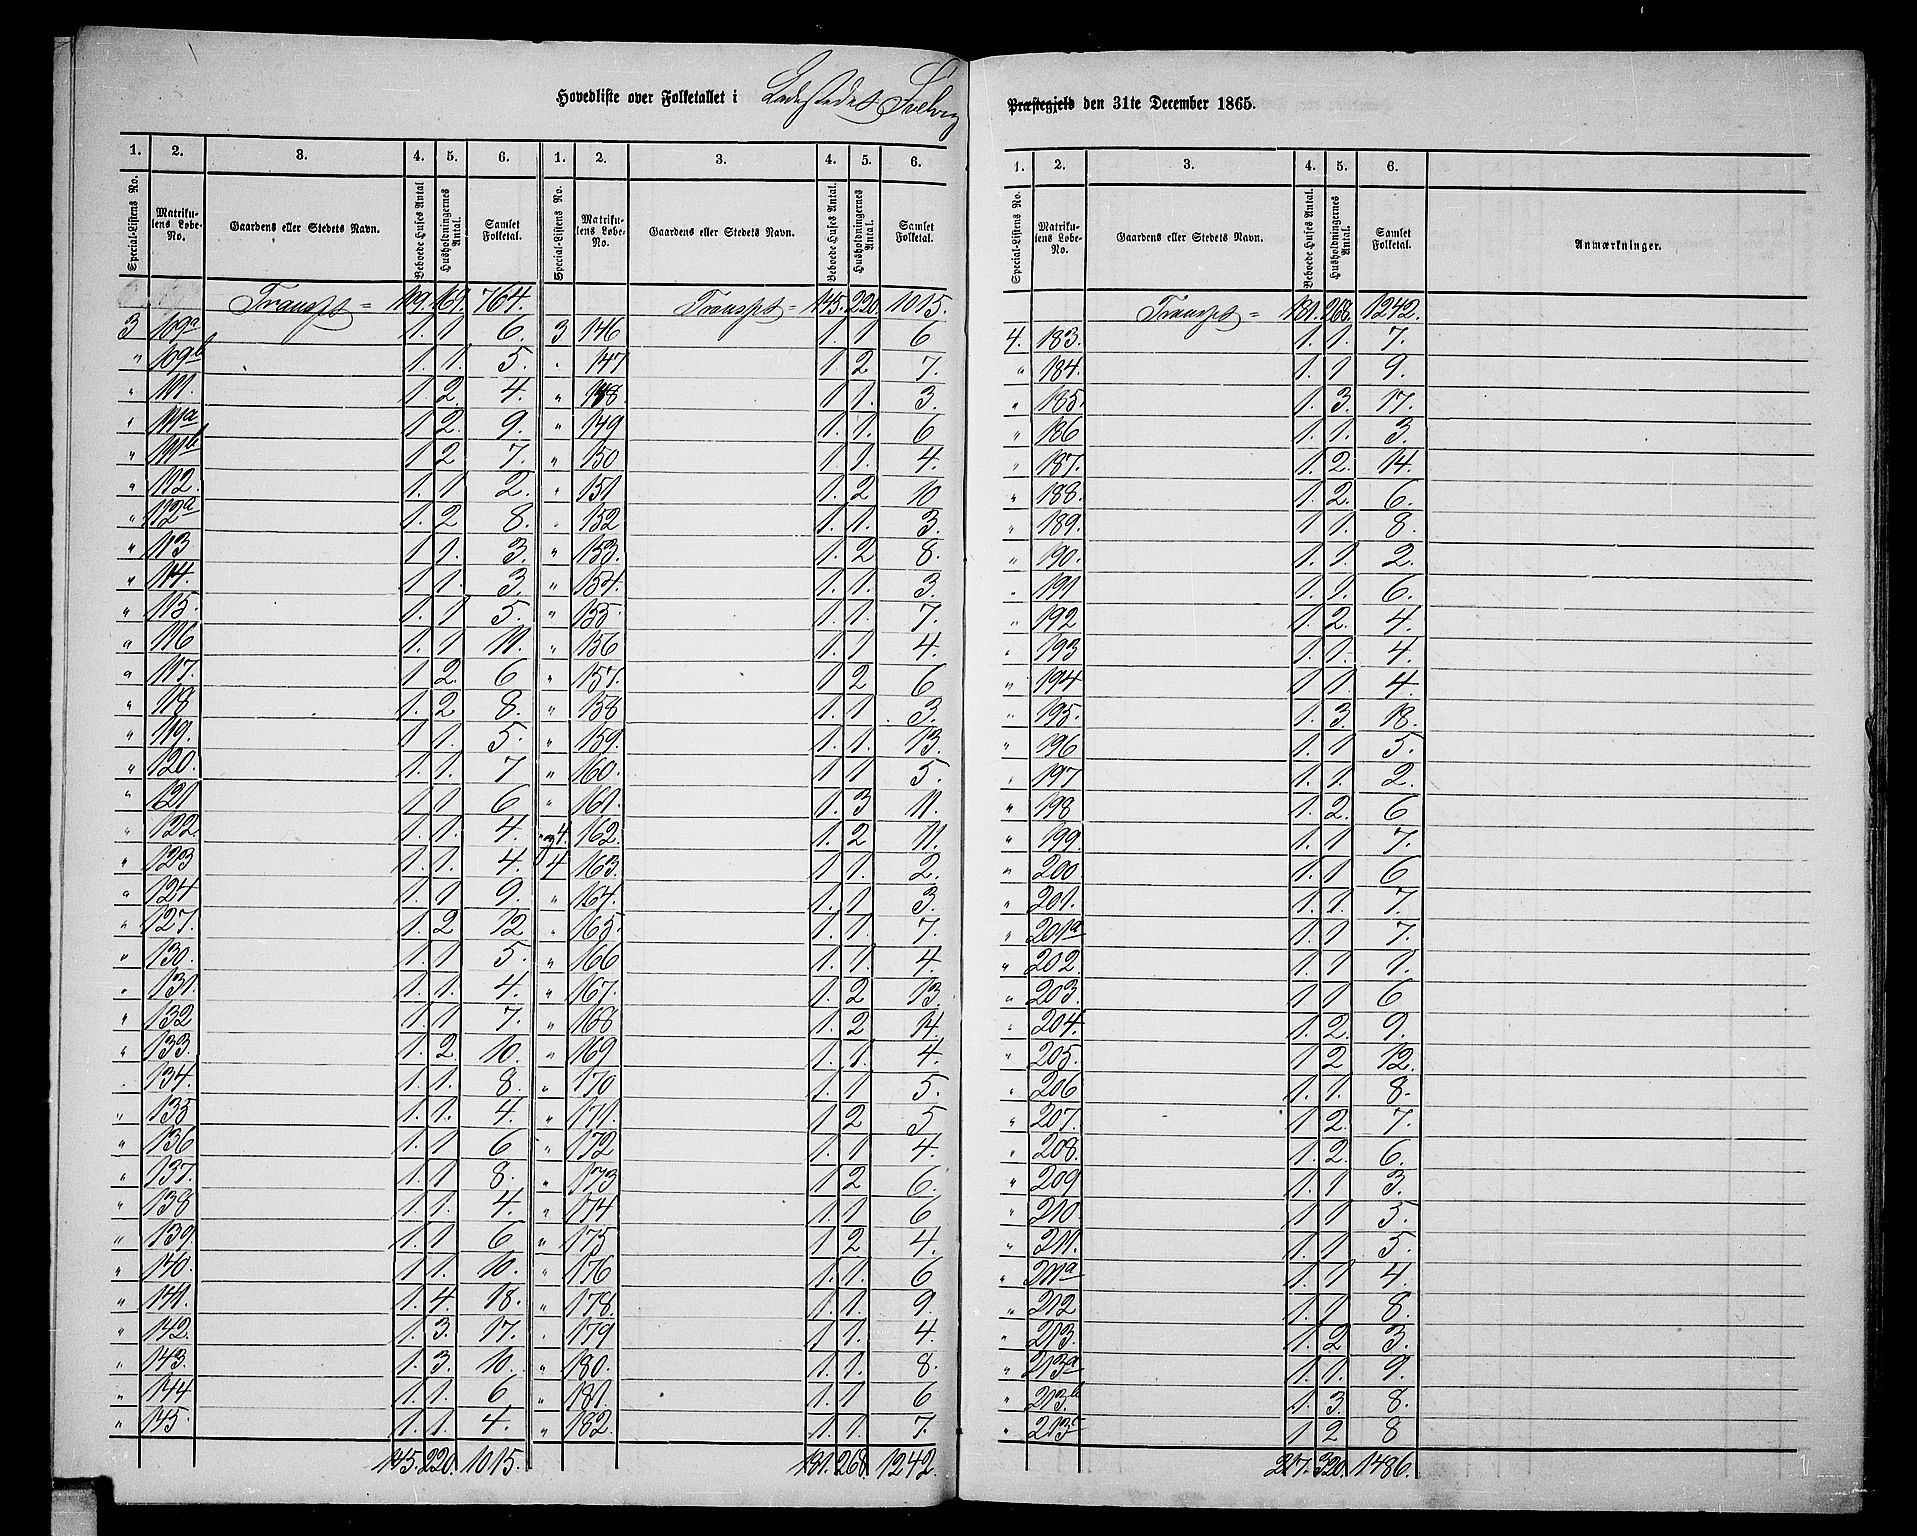 Hovedliste over Folketallet i Ladestedet Svelvig
1. 2. 3. 4. 5. 6. 1. 2. 3. 4. 5. 6.
Special-Listens No. Matrikulens Løbe-No. Gaardens eller Stedets Navn. Beboede Huses Antal Husholdningernes Antal. Samlet Folketal. Special-Listens No. Matrikulens Løbe-No. Gaardens eller Stedets Navn. Beboede Huses Antal. Husholdningernes Antal. Samlet Folketal.
Transpt = 109. 169. 764. Transpt = 145. 220. 1015.
3 109a 1. 1 6. 3 146 1. 1 6
" 109b 1. 1. 5. " 147 1. 2 7.
" 111. 1 2. 4. " 148. 1 1. 3.
" 111a 1 2. 9. " 149 1. 1. 6
" 111b 1 2 7. " 150 1. 1. 4.
" 112. 1. 1 2. " 151 1. 2 10
" 112a 1. 2 8. " 152 1. 1. 3.
" 113 1 1. 3. " 153. 1. 2 8.
" 114. 1 1. 3. " 154. 1. 1. 3.
" 115. 1. 1 5. " 155. 1. 1 7.
" 116 1. 1 11. " 156 1. 1 4.
" 117. 1 2. 6 " 157. 1 2 6
" 118 1. 2 8. " 158 1. 1 3.
" 119. 1 1. 5. " 159. 1. 1. 13.
" 120. 1. 1. 7 " 160. 1 1 5.
" 121 1 1 6 " 161. 1. 3 11.
" 122. 1. 1. 4. " 4. 162. 1. 2 11.
" 123 1. 1. 4. 4 163. 1 1. 2.
" 124 1. 1 9. " 164. 1. 1 3.
" 127. 1. 2 12 " 165. 1. 1 7.
" 130. 1. 1 5. " 166 1. 1. 4.
" 131. 1. 1. 4. " 167. 1. 2 13.
" 132 1. 1 7. " 168 1. 2 14.
" 133. 1. 2. 10. " 169 1. 1. 4
" 134. 1. 1. 8. " 170 1. 1 5.
" 135 1. 1. 4. " 171. 1 2 5
" 136 1. 1 6 " 172 1. 1 4.
" 137. 1. 1 8. " 173 1 2 6.
" 138 1. 1. 4. " 174 1. 1 6
" 139. 1. 1 6 " 175 1 2 4.
" 140. 1. 1. 10. " 176 1. 1. 6
" 141. 1. 4. 18. " 178. 1. 1. 9.
" 142. 1. 3. 17. " 179 1 1. 4
" 143. 1. 3. 10. " 180. 1. 1. 8.
" 144 1. 1. 6 " 181. 1. 1 6
" 145. 1. 1. 4. " 182. 1. 1. 7.
145. 220. 1015. 181. 268. 1242.
Præstegjeld den 31te December 1865.
1. 2. 3. 4. 5. 6.
Special-Listens No. Matrikulens Løbe-No. Gaardens eller Stedets Navn. Beboede Huses Antal. Husholdningernes Antal. Samlet Folketal. Anmærkninger.
Transpt = 181. 268. 1242.
4. 183. 1. 1. 7.
" 184. 1. 1 9.
" 185. 1. 3. 17.
" 186 1. 1. 3.
" 187. 1. 2. 14.
" 188. 1. 2. 6.
" 189. 1 1. 8.
" 190. 1. 1. 2.
" 191 1. 1. 6.
" 192 1. 2. 4.
" 193 1. 1. 4.
" 194 1 1. 4.
" 195. 1. 3. 18.
" 196 1. 1 5.
" 197 1. 1. 2.
" 198 1. 2. 6
" 199. 1. 1 7.
" 200. 1. 1 6
" 201. 1. 1. 7.
" 201a 1. 1 7.
" 202. 1 1 1.
" 203. 1 1 6
" 204. 1. 2. 9.
" 205. 1. 2 12.
" 206 1. 1. 8.
" 207. 1 2. 7.
" 208. 1. 2. 6.
" 209 1. 1 3.
" 210 1 1 5.
" 211. 1. 1 5.
" 211a 1. 1 4.
" 212 1. 1 8.
" 213. 1. 2 3.
" 213a 1. 1. 9.
" 213b. 1. 3. 8.
" 213c 1 2 8
217. 320. 1486.